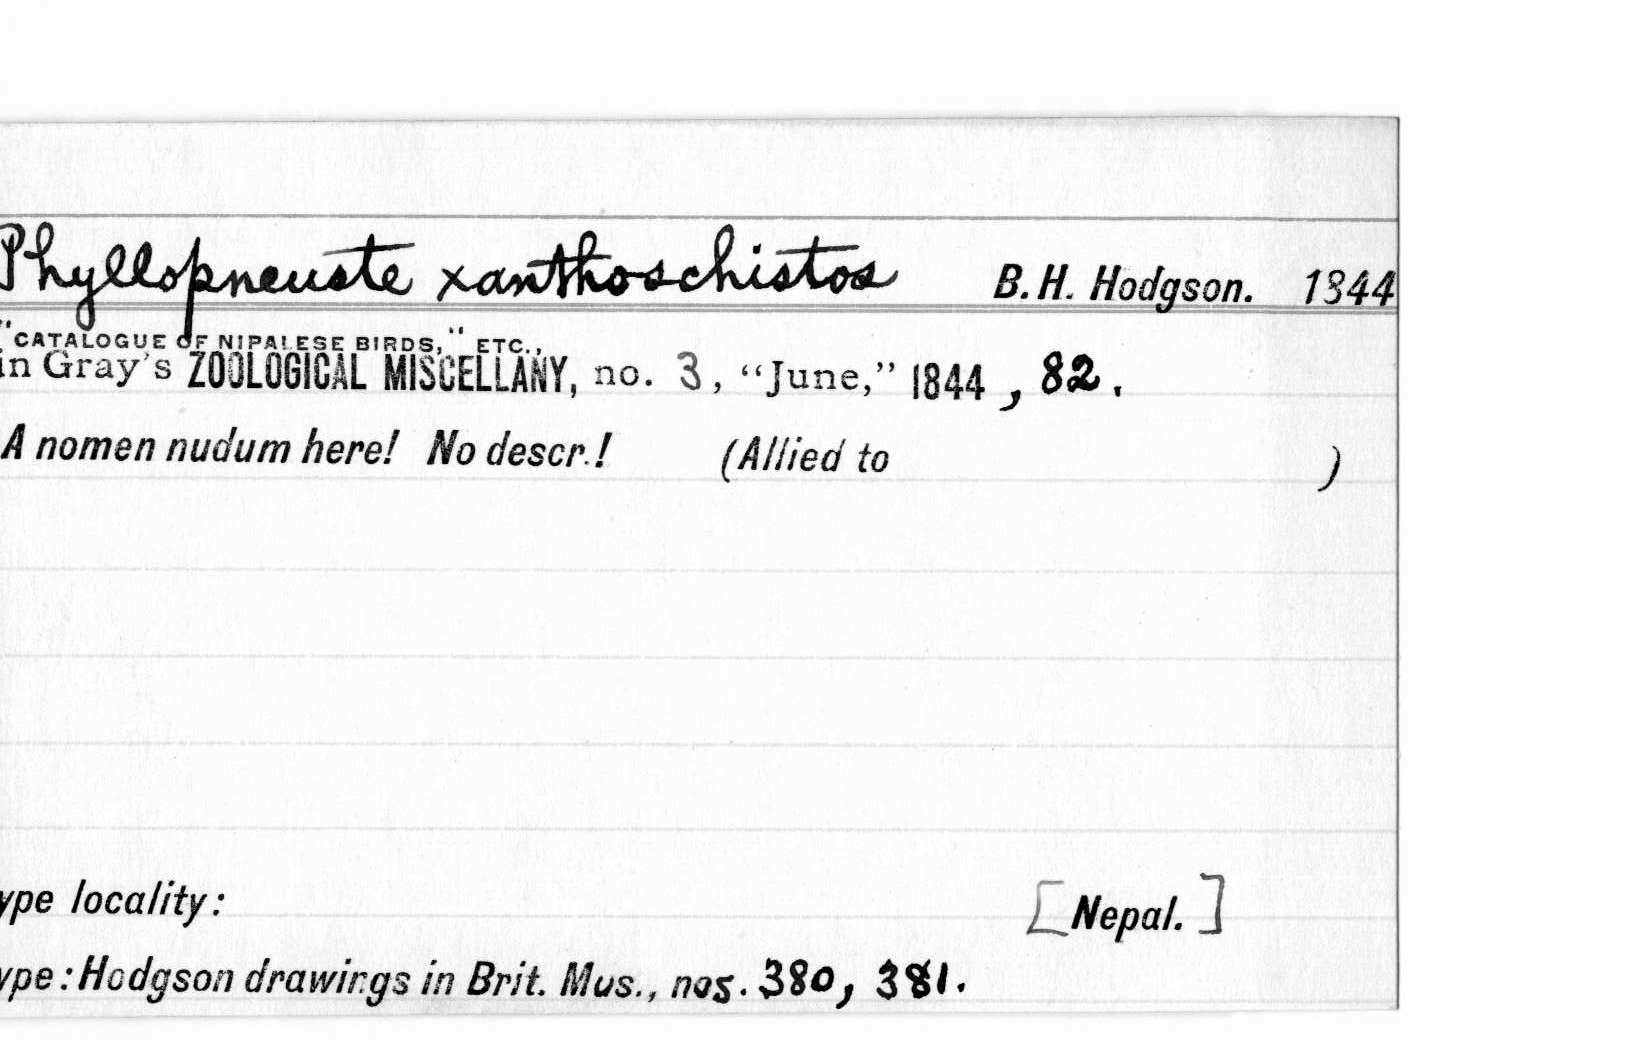 Phyllopneuste xanthoschistos B. H. Hodgson. 1844
"CATALOGUE OF NIPALESE BIRDS," ETC.,
in Gray's ZOOLOGICAL MISCELLANY, no. 3, "June," 1844, 82.
A nomen nudum here! No descr.! (Allied to )
ype locality: [Nepal.]
ype: Hodgson drawings in Brit. Mus., nos. 380, 381.